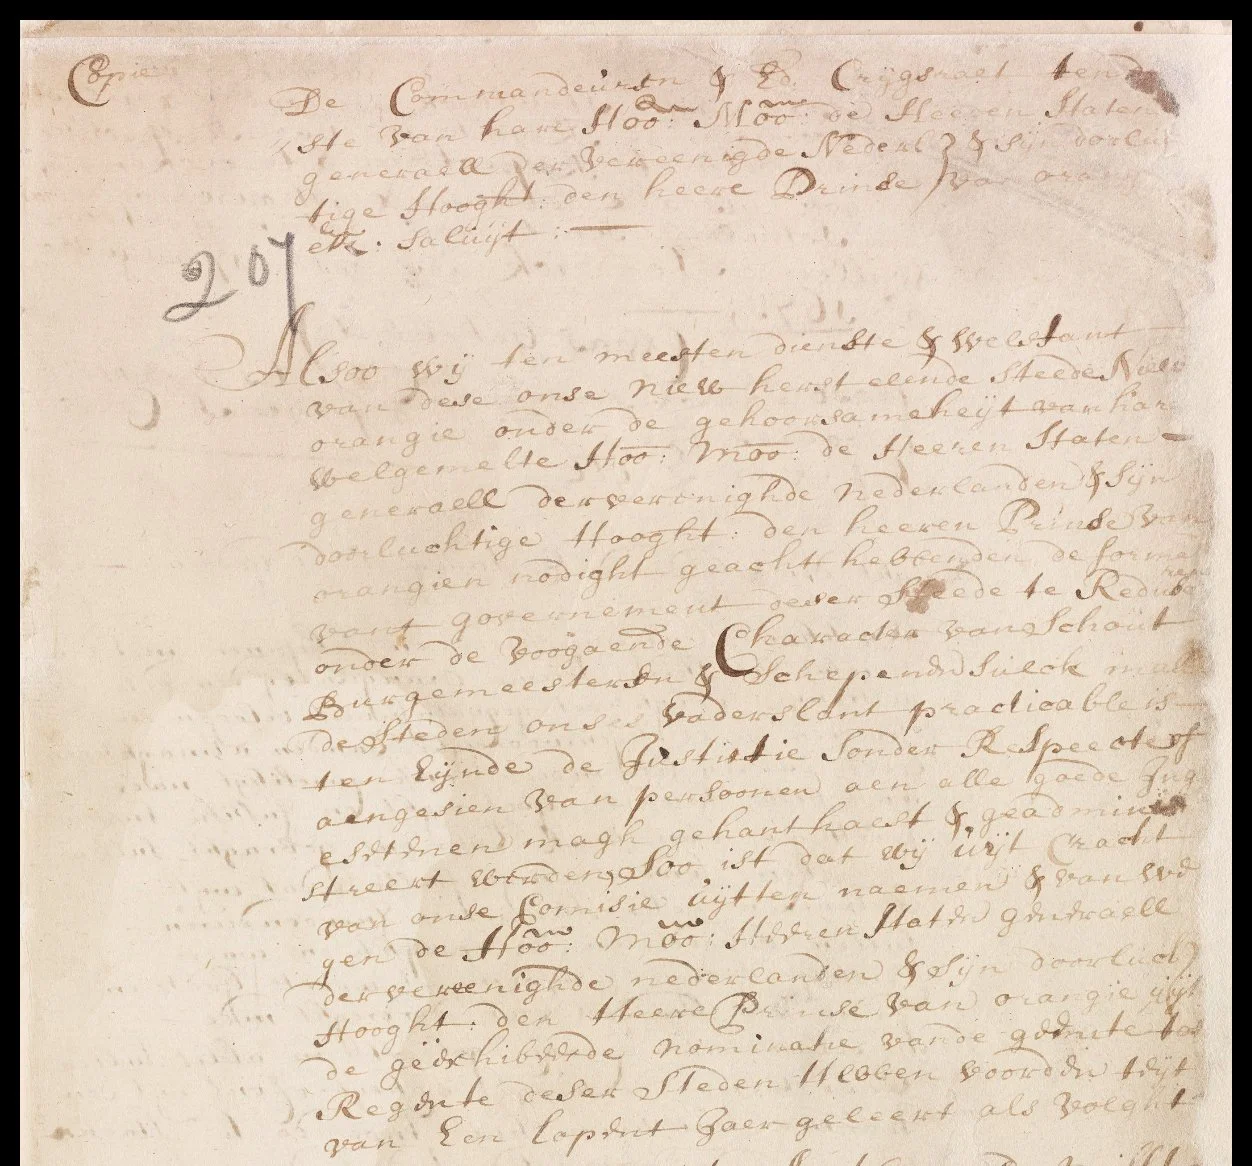 Copie
De Commandeuren & Ed. Crijgsraet ten d
ste van hare Hoo: Moo: de Heeren Staten
generaell der vereenigde Nederl: & sijn doorluch
tige Hooght: den heere Prinse van oran
etc: Saluijt :
207
Alsoo wij ten meesten dienste & welstant
van dese onse niew herstelende steede Niew
orangie onder de gehoorsaemheijt van hare
welgemelte Hoo: Moo: de Heeren Staten
generaell der verenighde nederlanden & Sijn
doorluchtige Hooght: den heeren Prinse van
orangien nodight geacht hebbenden de forme
vant governement deser Steede te Reduce
ren
onder de voorgaende Characters van Schout
Burgemeesteren & Schepenen Sulck in al
de Steden onses vaderslant practicable is
ten Eijnde de Justitie Sonder Respeckte of
aengesien van persoonen aen alle goede Ing
esetenen magh gehanthaest & geadmini
streert worden, Soo ist dat wij uijt Cracht
van onse Comisie uijtten naemen & van we
gen de Hoo: Moo: Heeren Staten generaell
der vereenighde nederlanden & Sijn doorlucht
Hooght: den Heere Prinse van orangie uijt
de geexhibeerde nominatie vande gemte tot
Regente deser Steden Hebben voor den tijt
van Een lopent Jaer geleert als volght